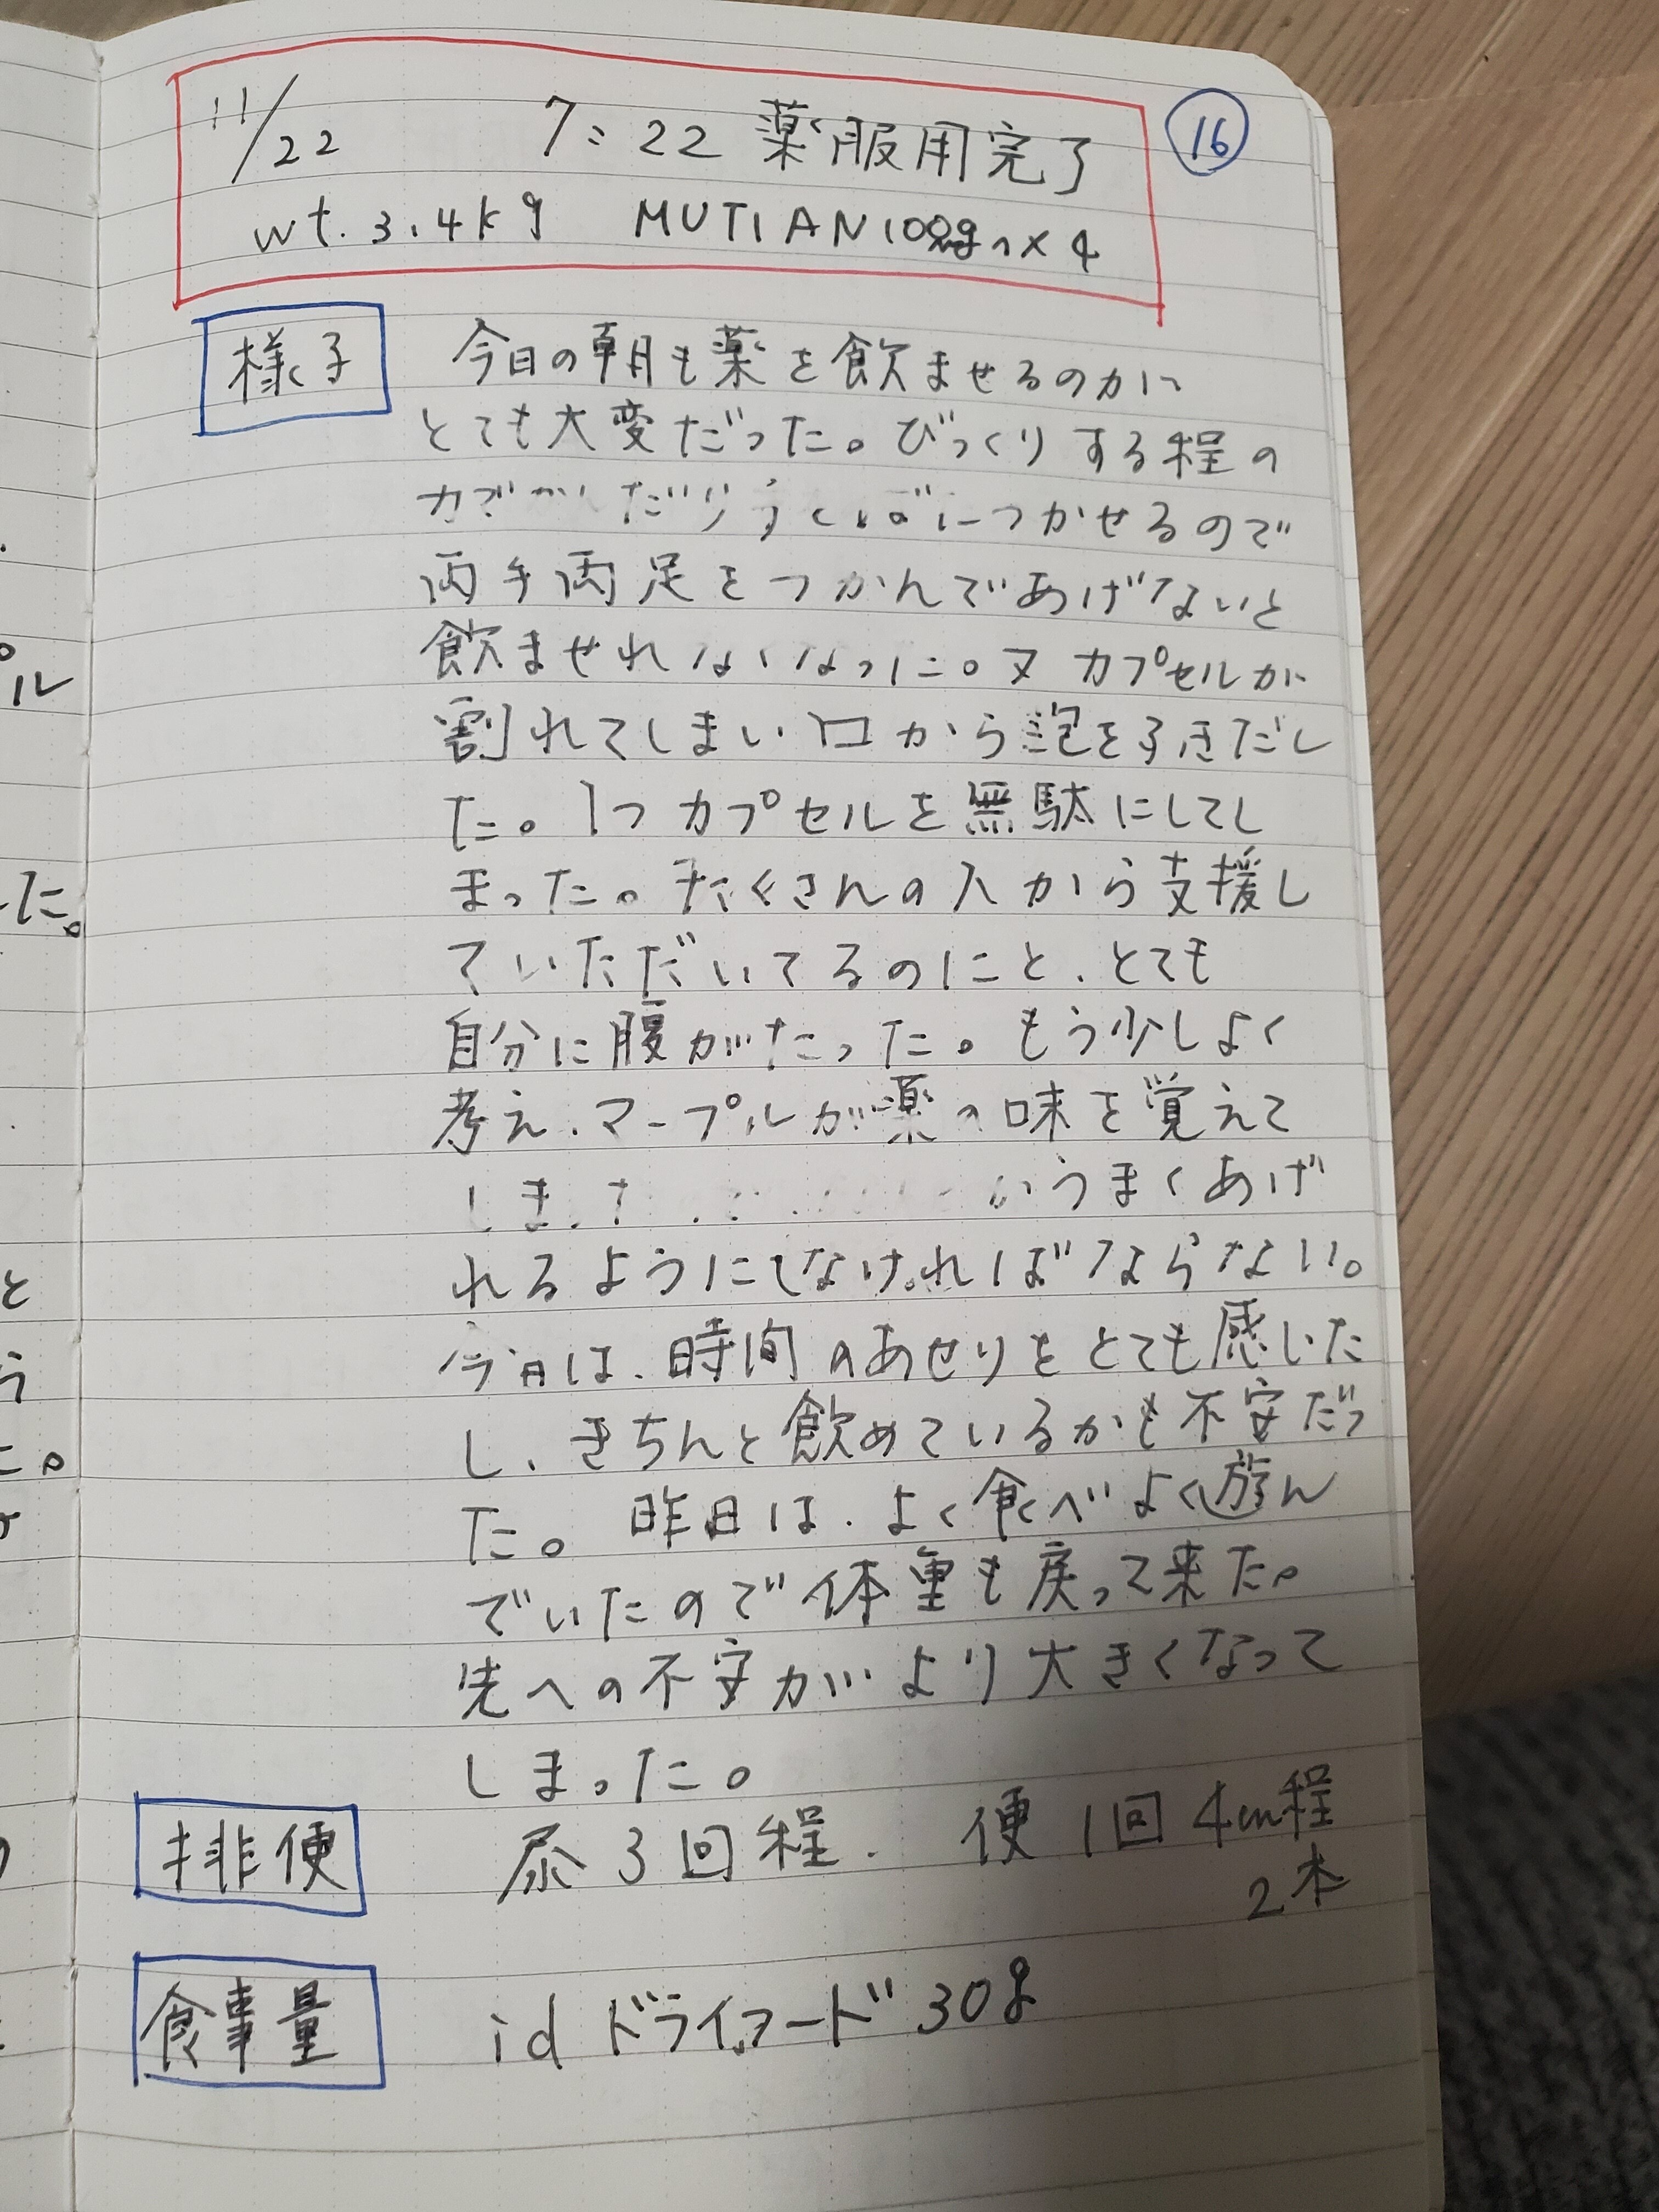 11/22 7:22 薬服用完了
⑯
wt. 3.4kg MUTIAN 100mg×4
様子
今日の朝も薬を飲ませるのがに
とても大変だった。びっくりする程の
力で につかせるので
両手両足をつかんであげないと
飲ませれなくなった。又カプセルが
割れてしまい口から泡をふきだし
た。1つカプセルを無駄にしてし
まった。たくさんの人から支援し
ていただいてるのにと、とても
自分に腹がたった。もう少しよく
考え、マープルが薬の味を覚えて
しま うまくあげ
れるようにしなければならない。
今日は、時間のあせりをとても感じた
し、きちんと飲めているかも不安だっ
た。昨日は、よく食べよく遊ん
でいたので体重も戻って来た。
先への不安がより大きくなって
しまった。
排便
尿3回程. 便1回4cm程
2本
食事量
id ドライフード 30g
ル
た。
と
う